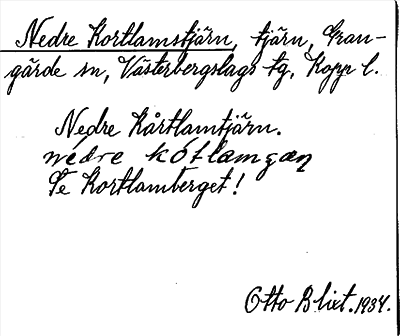 Nedre Kortlamstjärn, tjärn, Gran-
gärde sn, Västerbergslags tg, Kopp l.
Nedre Kårtlamtjärn.
nédre kótlamgæn
Se Kortlamberget!
Otto Blixt. 1934.